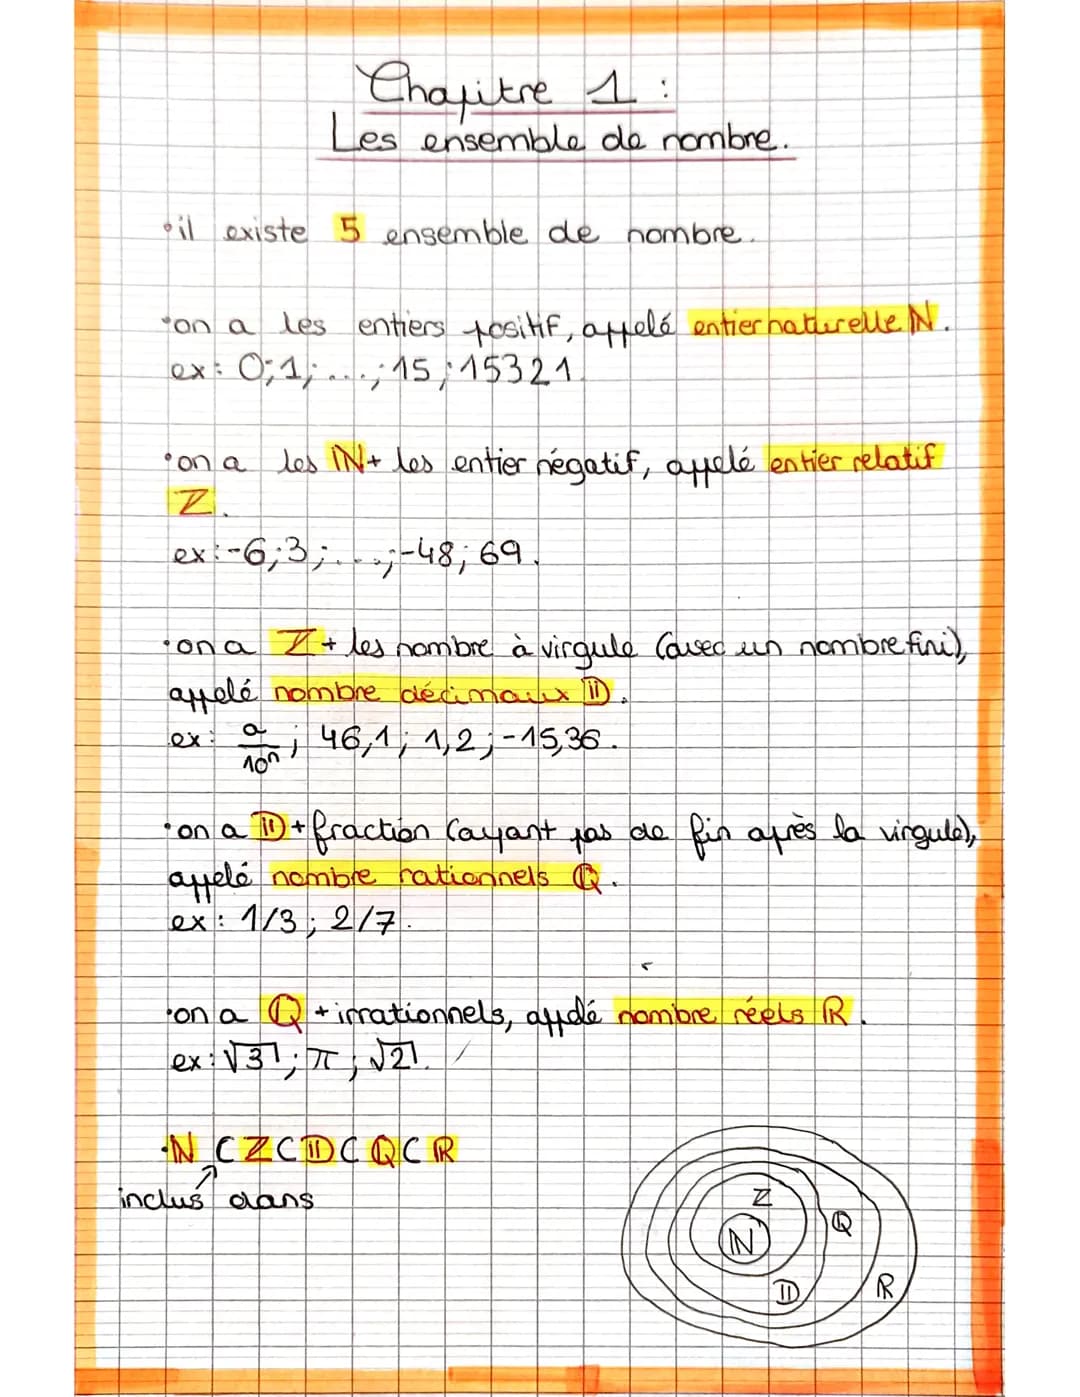 Chapitre 1 :
Les ensemble de nombre.
•il existe 5 ensemble de nombre.
•on a les entiers positif, appelé entier naturelle ℕ.
ex : 0;1;...;15;15321.
•on a les ℕ+ les entier négatif, appelé entier relatif
ℤ.
ex:-6;3;...;-48;69.
•on a ℤ+ les nombre à virgule (avec un nombre fini),
appelé nombre décimaux 𝔻.
ex: a/10ⁿ; 46,1; 1,2;-15,36.
•on a 𝔻+fraction (ayant pas de fin après la virgule),
appelé nombre rationnels ℚ.
ex: 1/3; 2/7.
•on a ℚ +irrationnels, appelé nombre réels ℝ.
ex:√3; π; √2.
•ℕ⊂ℤ⊂𝔻⊂ℚ⊂ℝ
inclus dans
ℤ
ℚ
ℕ
𝔻
ℝ